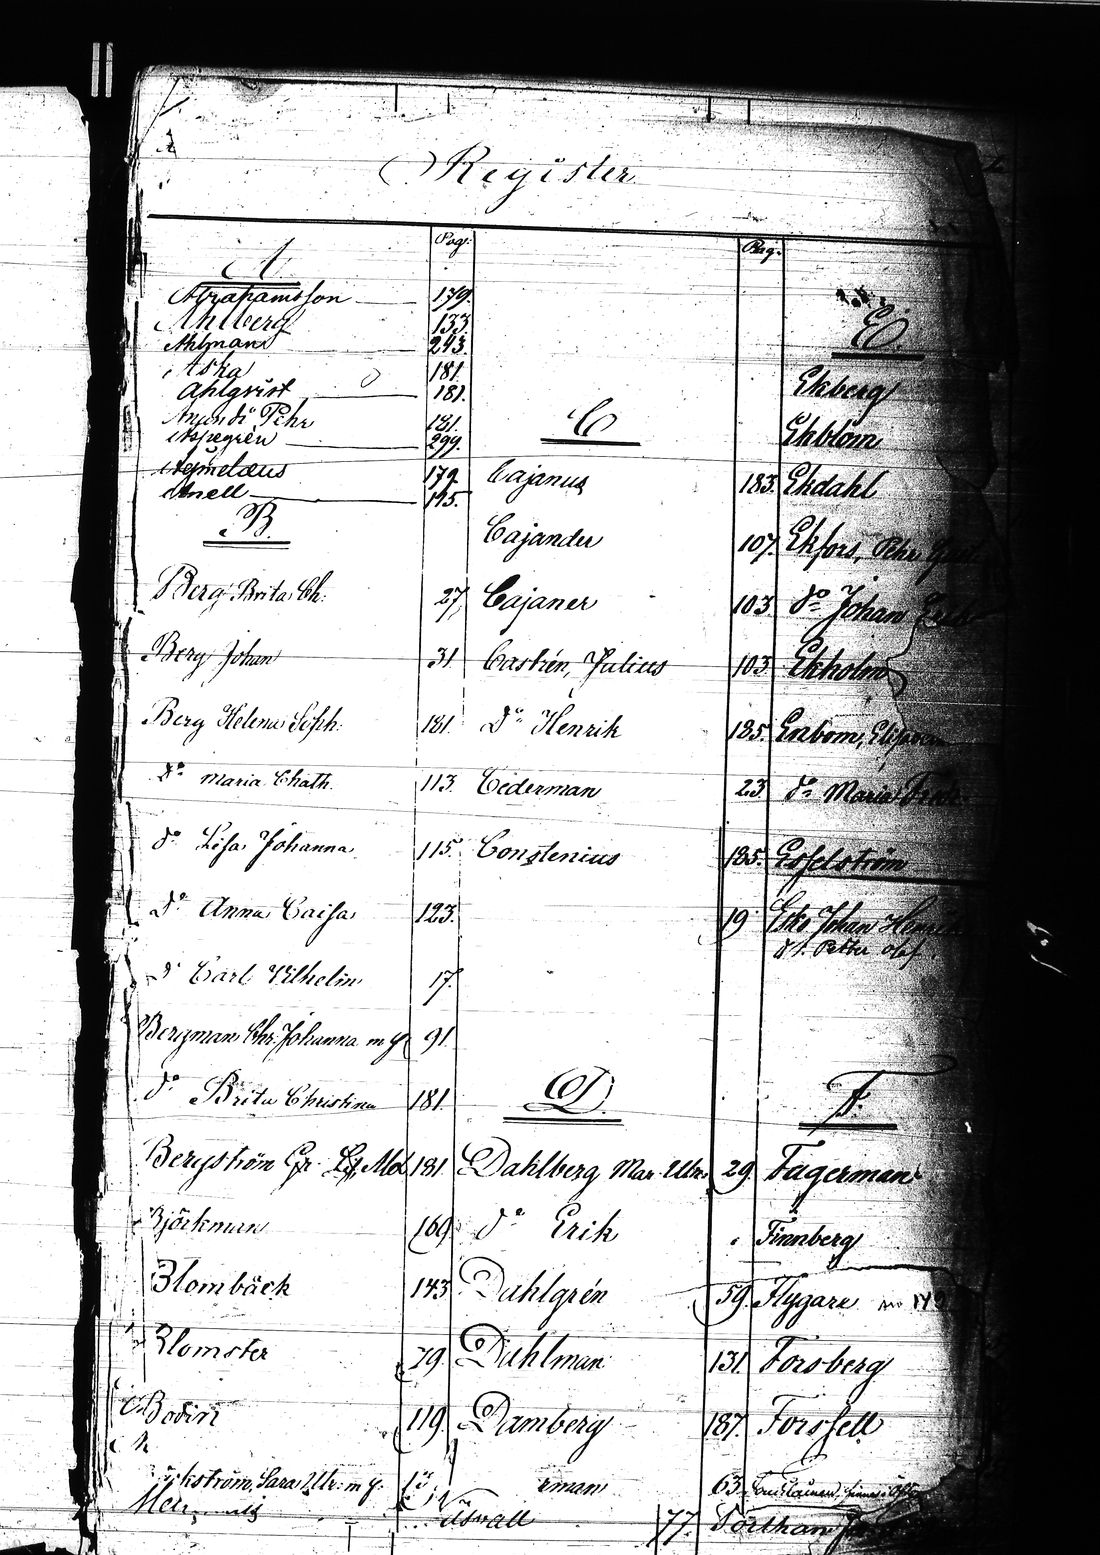 Register
Pag:
A
Abrahamsson 179.
Ahlberg 133.
Ahlman 243.
Aska 181.
Ahlqvist 181.
Pehr 181.
Aspegrén 299.
Aejmelæus 179
Anell 145.
B.
Berg Brita Ch: 27,
Berg Johan 31.
Berg Helena Soph: 181.
do maria Chath. 113.
do Lisa Johanna 115.
do Anna Caisa 123.
do Carl Vilhelm 17.
Bergman Chr. Johanna m g 91.
do Brita Christina 181.
Bergström Gr. 181.
Björkman 169
Blombäck 143
Blomster 79.
Bodin 119.
Sara Ulr: m g:
Pag.
C
Cajanus 183.
Cajander 107.
Cajaner 103.
Castrén, Julius 103.
do Henrik 185.
Cederman 23
Constenius 185.
19
D.
Dahlberg Mar. Ulr. 29.
do Erik
Dahlgrén 59.
Dahlman 131.
Damberg 187.
rman 63.
77.
E
Ekberg
Ekblom
Ekdahl
Ekfors, Pehr
do Johan
Ekholm
Enbom,
do Maria
Esselström
Esko Johan Henrik
Petter Olof
F.
Fagerman
Finnberg
Flygare
Forsberg
Forssell